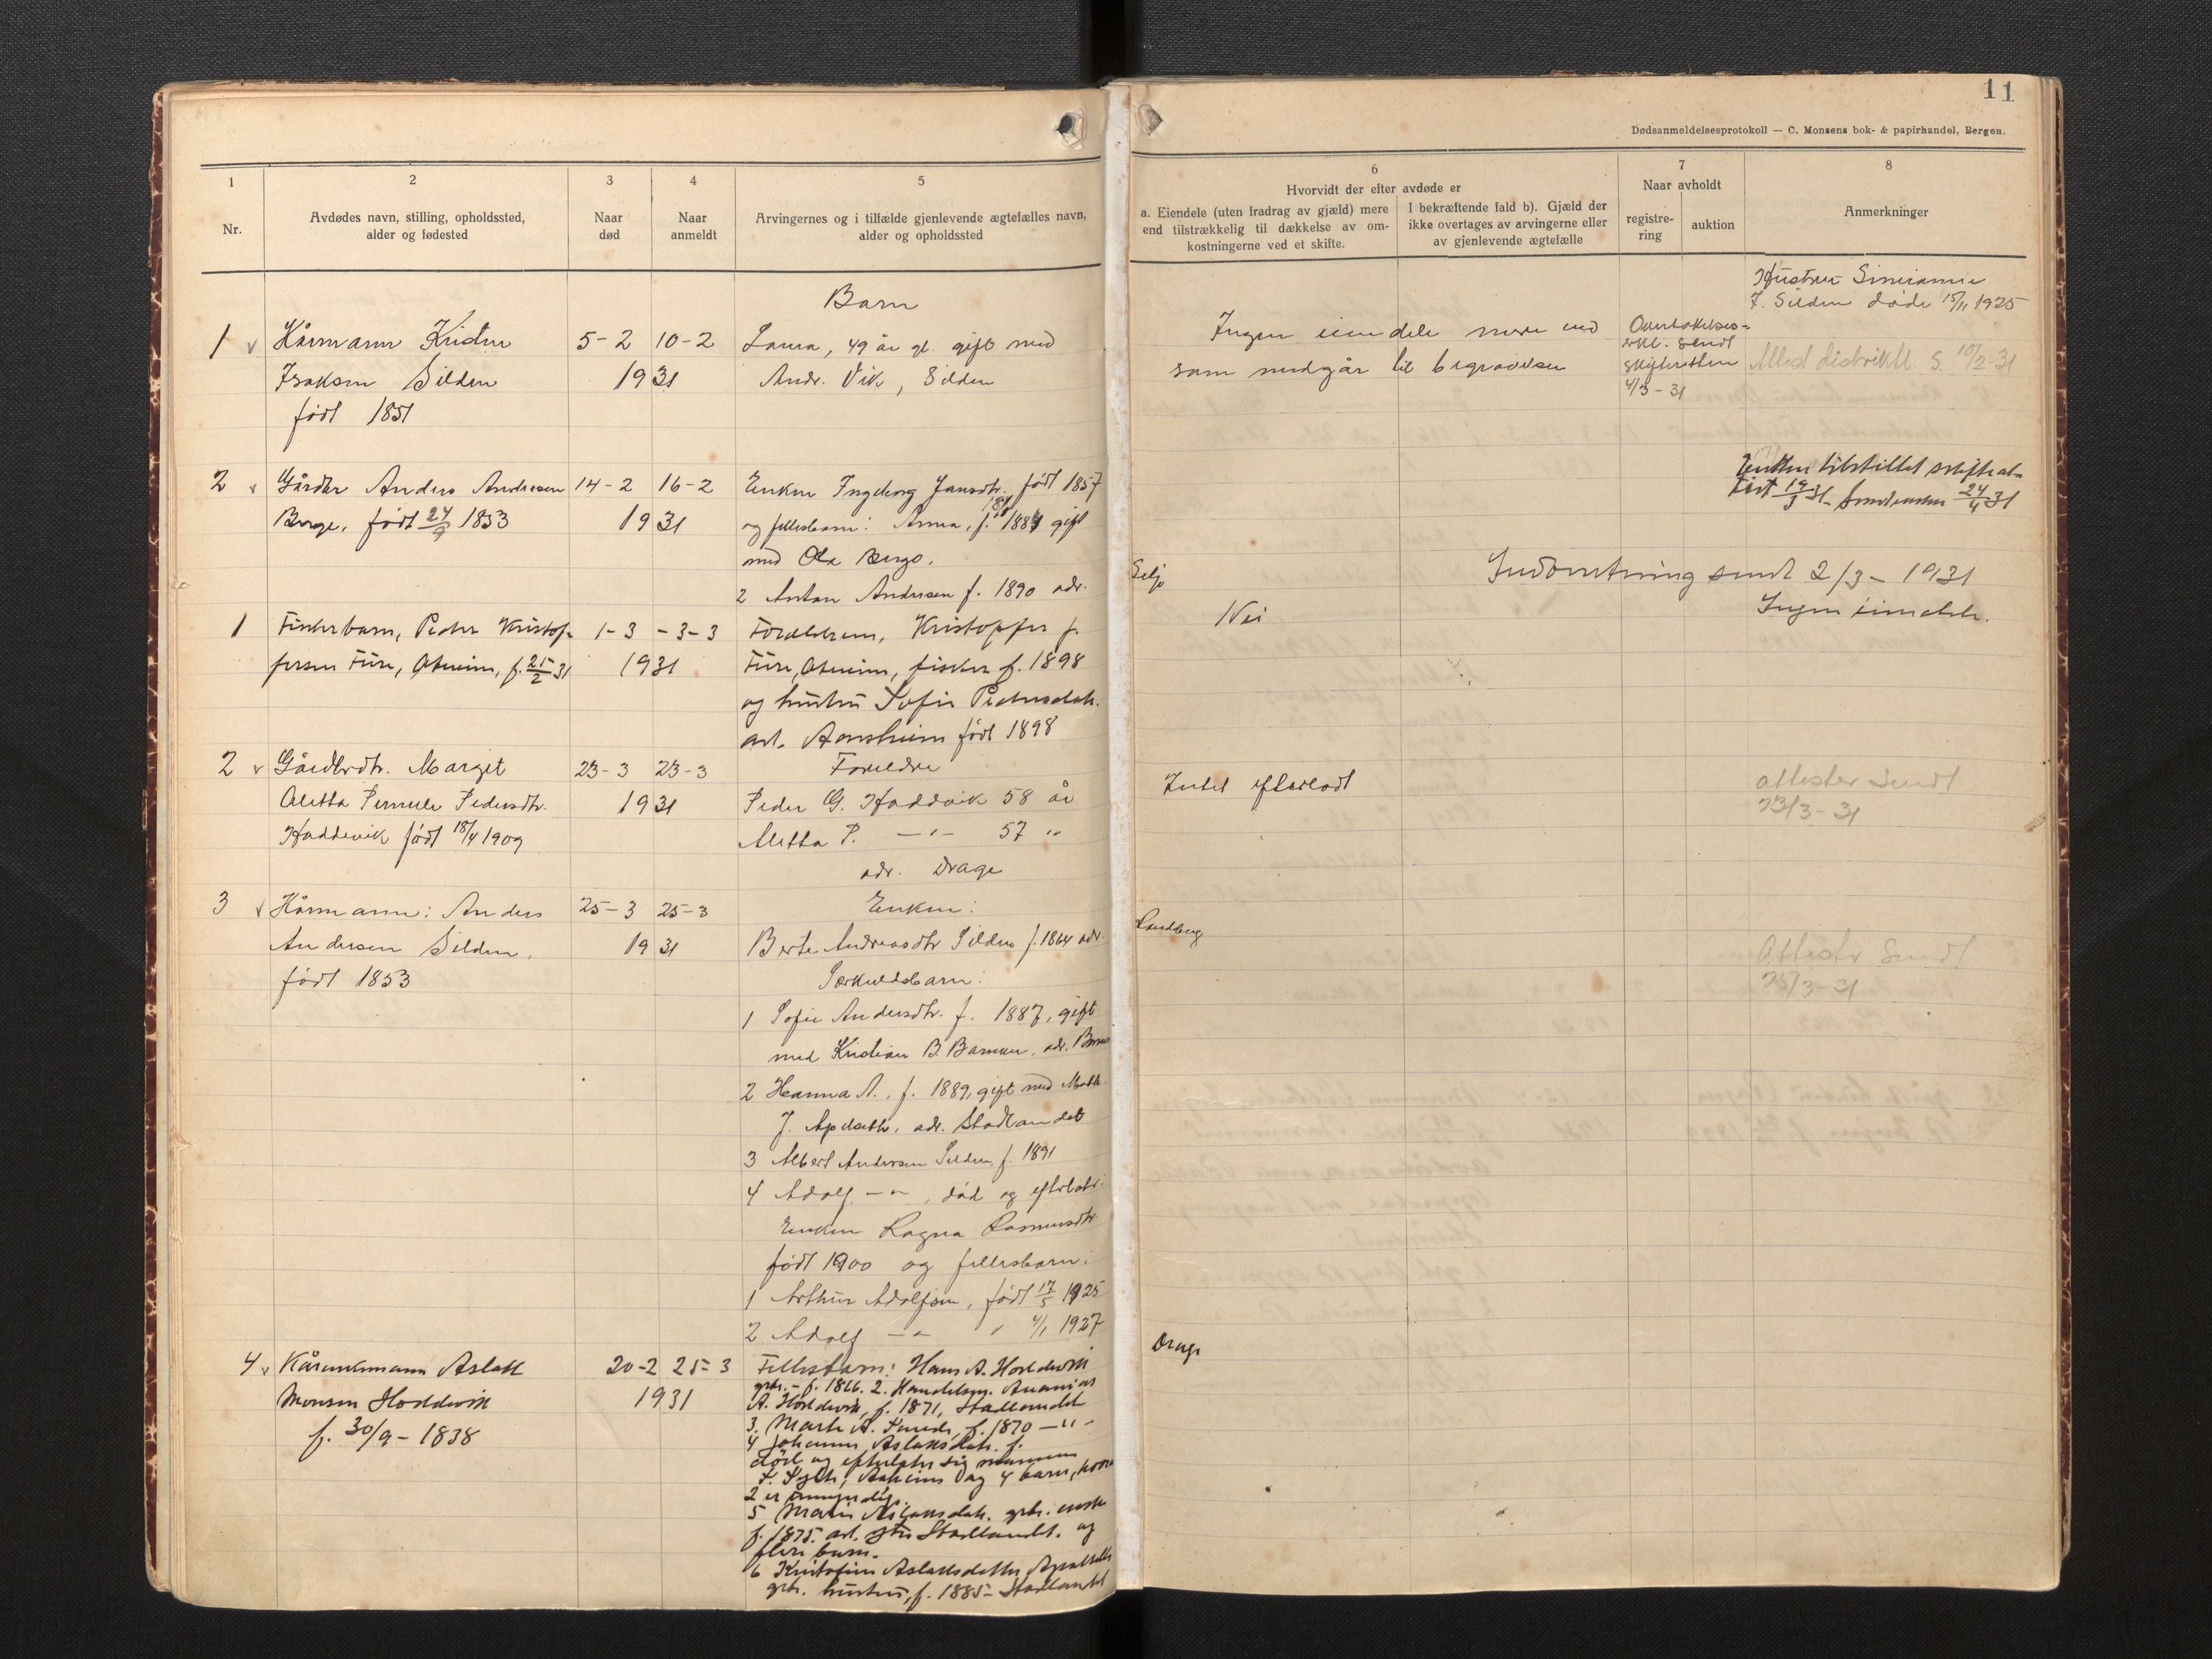 11
Dødsanmeldelsesprotokoll — C. Monsens bok- & papirhandel, Bergen.
1
Nr.
2
Avdødes navn, stilling, opholdssted,
alder og fødested
3
Naar
død
4
Naar
anmeldt
5
Arvingernes og i tilfælde gjenlevende ægtefælles navn,
alder og opholdssted
6
Hvorvidt der efter avdøde er
a. Eiendele (uten fradrag av gjæld) mere
end tilstrækkelig til dækkelse av om-
kostningerne ved et skifte.
I bekræftende fald b). Gjæld der
ikke overtages av arvingerne eller
av gjenlevende ægtefælle
7
Naar avholdt
registre-
ring
auktion
8
Anmerkninger
Barn
1 Kårmann Kristen 5-2 10-2 Laura, 49 år gl. gift med
Isaksen Silden 1931 Andr. Vik, Silden
født 1851
Ingen eiendele mere end
som medgår til begravelsen
sendt
skifteretten
4/3-31
Hustru
J. Silden døde 15/11 1925
S. 10/2-31
2 Gårdbr Anders Andresen 14-2 16-2 Enken Ingeborg Jansdtr. født 1857
Berge, født 24/9 1853 1931 og fellesbarn: Anna, f. gift
med Ola Berge.
2 Anton Andersen f. 1890 adr. Selje
Enken tilstillet skifteat-
test 19/3 31 24/4 31
Indberetning sendt 2/3-1931
1 Fiskerbarn, Peder Kristof- 1-3 -3-3 Foreldrene, Kristoffer f.
fersen Fure, Åheim, f. 25/2 31 1931 Fure, Åheim, fisker f. 1898
og hustru Sofie Pedersdatr.
født 1898
Nei
Ingen eiendele.
2 Gårdbrdtr. Margit 23-3 23-3 Foreldre
Aletta Pernele Pedersdtr. 1931 Peder G. Hoddevik 58 år
Hoddevik født 18/4 1909 Aletta P. —"— 57 "
adr. Drage
Intet efterlodt
attester sendt
23/3-31
3 Kårmann: Anders 25-3 25-3 Enken:
Andersen Silden, 1931 Berte Andreasdtr Silden f. 1864 adr.
født 1853 Særkuldsbarn:
1 Sofie Andersdtr. f. 1887, gift
med Kristian B. Barmen, adr.
2 Hanna A., f. 1889, gift med
J. Apelseth, adr. Stadlandet
3 Albert Andersen Silden, f. 1891
4 Adolf —"— , død og efterlatt:
Enken Ragna Rasmusdtr
født 1900 og fellesbarn:
1 Arthur Adolfsen, født 17/5 1925
2 Adolf —"— " 4/1 1927
Attester sendt
25/3-31
4 Kårmann Aslak 20-2 25-3 Fellesbarn: Hans A. Hoddevik
Monsen Hoddevik 1931 grbr. - f. 1866. 2. Handelsm. Ananias
f. 30/9-1838 A. Hoddevik, f. 1871, Stadlandet
3. Marte A. f. 1870 —"—
4 Johanne Aslaksdatr. f.
død og efterlater sig mannen
og 4 barn, hvorav
2 er umyndige.
5 Marie Aslaksdatr. grbr. enke
f. 1875. Stadlandet. og
flere barn.
6 Aslaksdatter
grbr. hustru, f. 1885- Stadlandet
Drage